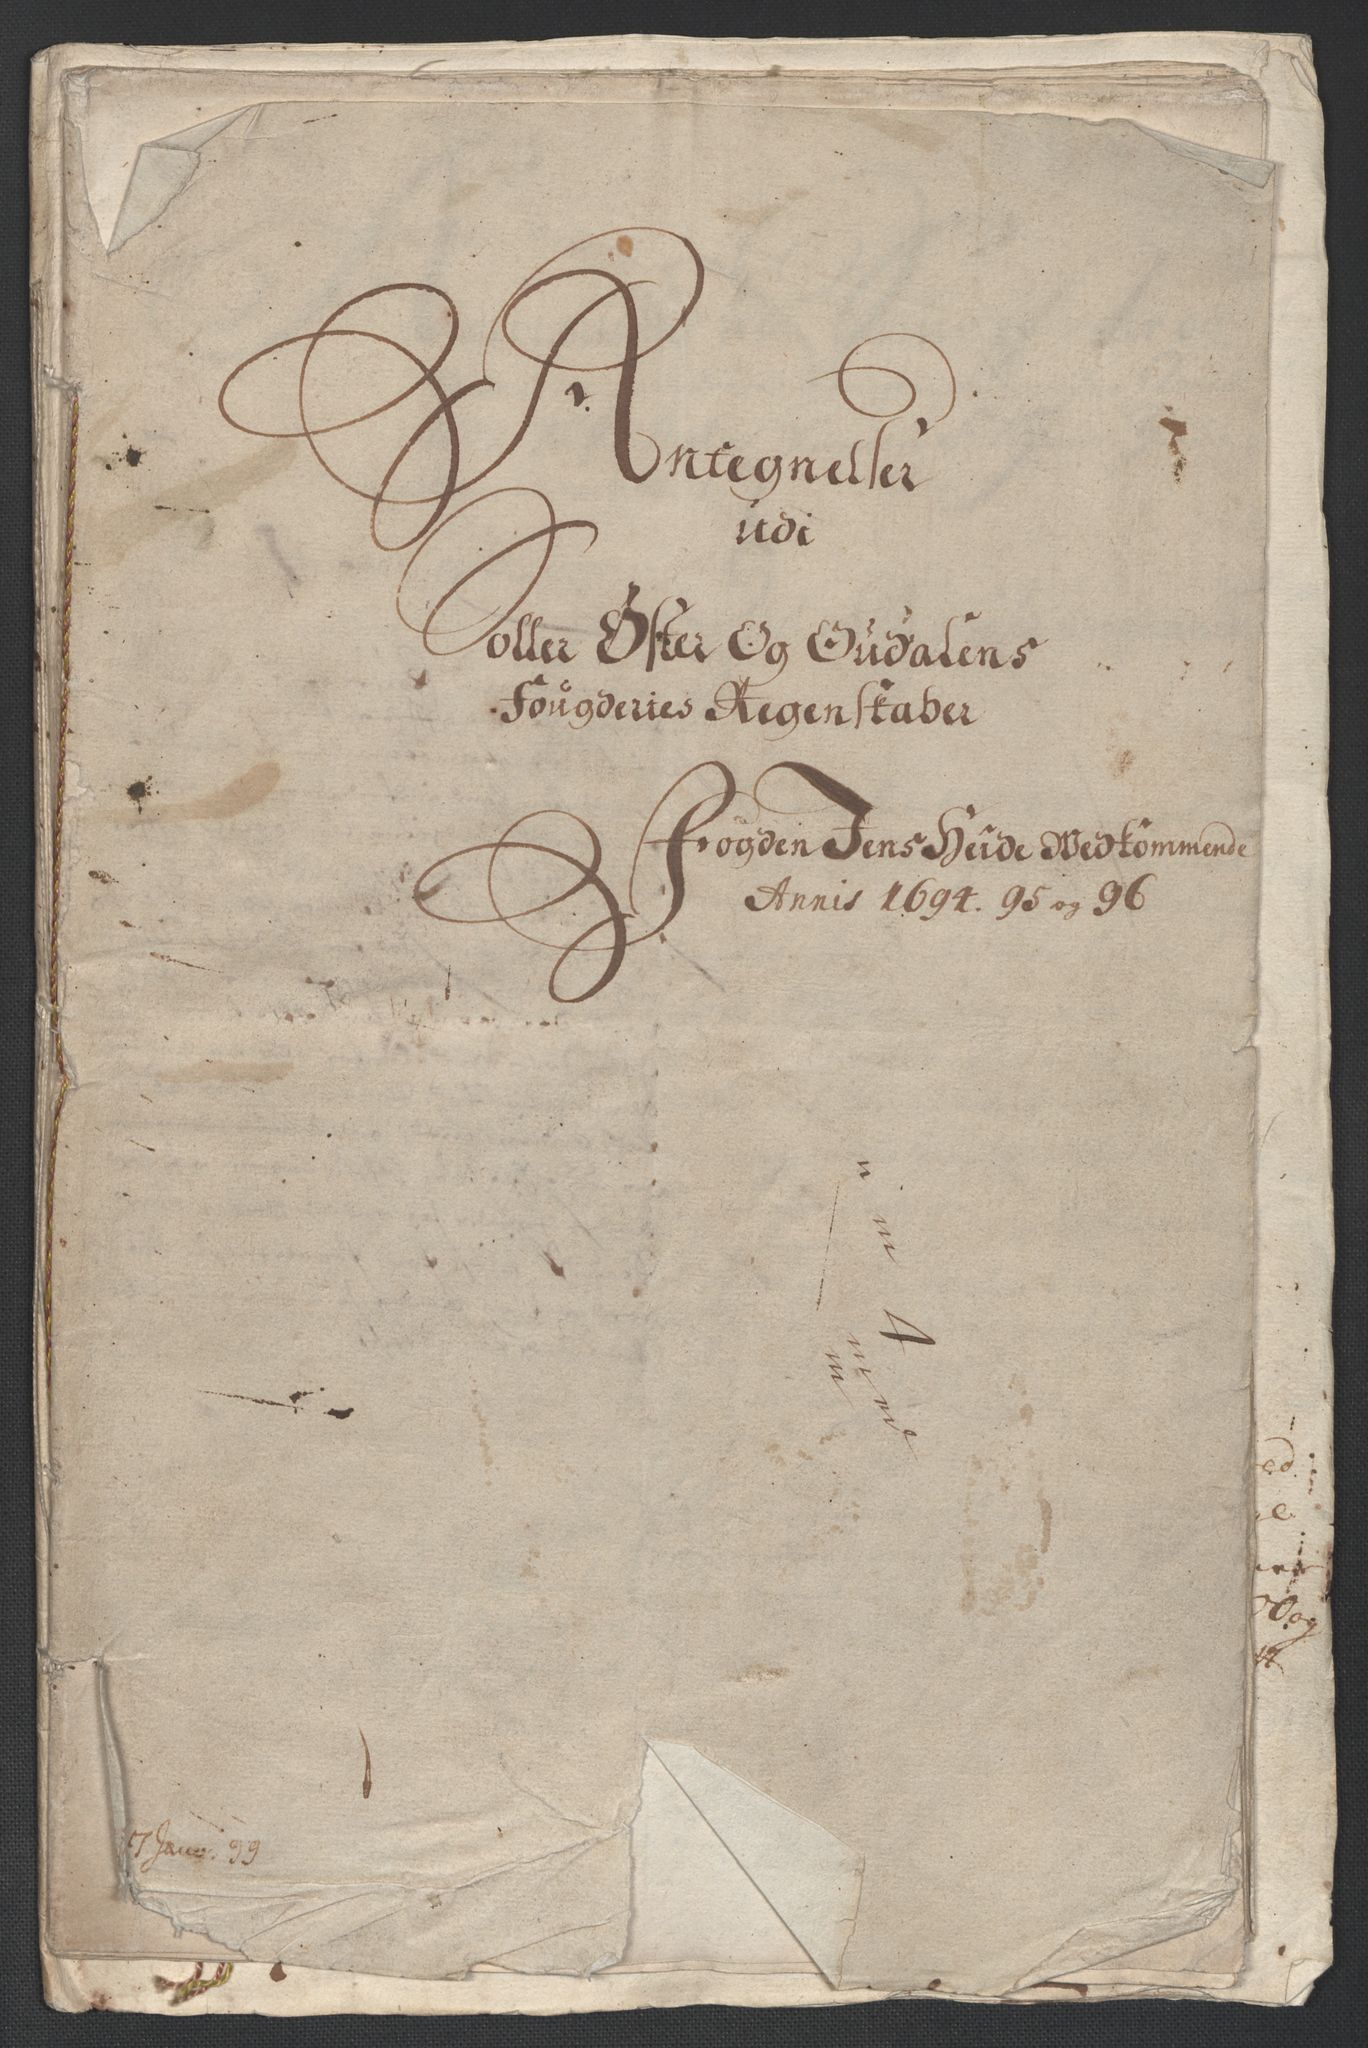 Antegnelser
udi
Soløer Øster Og Oudalens
Fougderies Regenskaber
Fogden Jens Heide Vedkommende
Annis 1694. 95 og 96
4
7 Janv. 99
ed